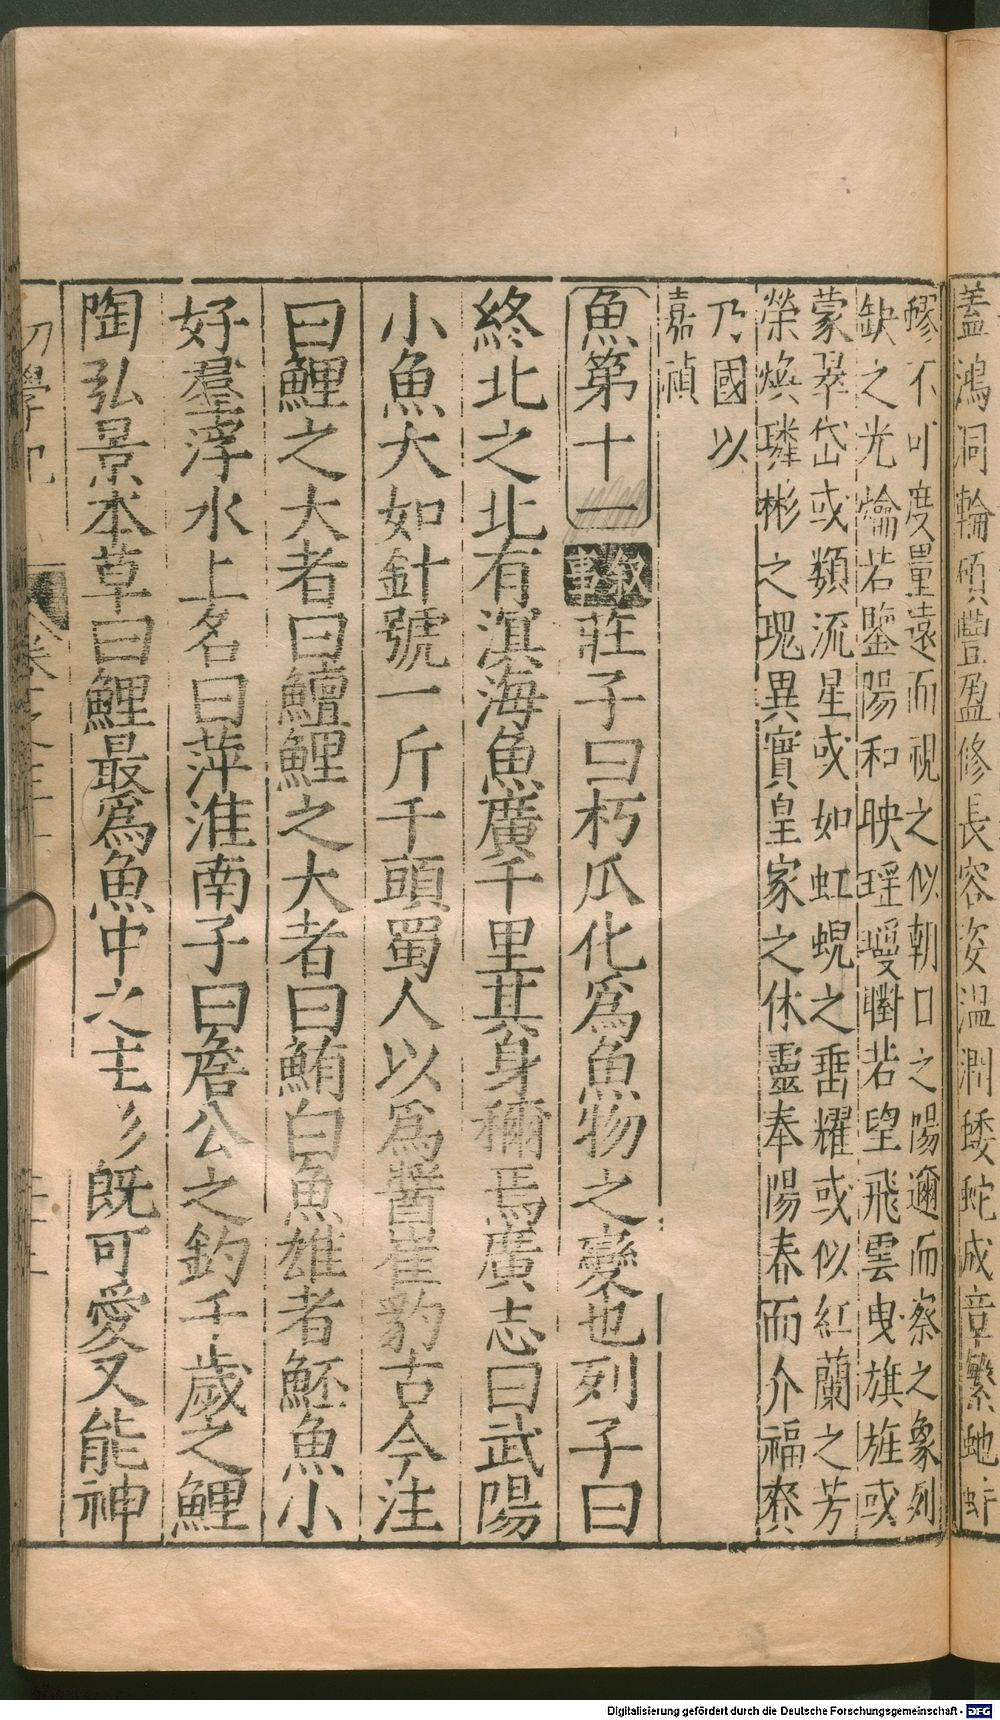 蓋鴻洞輪碩豐盈修長容姿溫潤蜲蛇成章繁虵蚪
繆不可度量遠而視之似朝日之陽邇而察之象列
缺之光爚若鑒陽和映瑤瓊瞓若望飛雲曳旗旌或
蒙翠岱或類流星或如虹蜺之垂耀或似紅蘭之芳
榮煥璘彬之瑰異實皇家之休靈奉陽春而介福賚
乃國以
嘉禎
魚第十一 叙事 莊子曰朽瓜化爲魚物之變也列子曰
終北之北有溟海魚廣千里其身稱焉廣志曰武陽
小魚大如針號一斤千頭蜀人以爲醬崔豹古今注
曰鯉之大者曰鱣鯉之大者曰鮪白魚雄者魾魚小
好羣浮水上名曰萍淮南子曰詹公之釣千歲之鯉
陶弘景本草曰鯉最爲魚中之主形既可愛又能神
初學記
卷三十
Digitalisierung gefördert durch die Deutsche Forschungsgemeinschaft - DFG